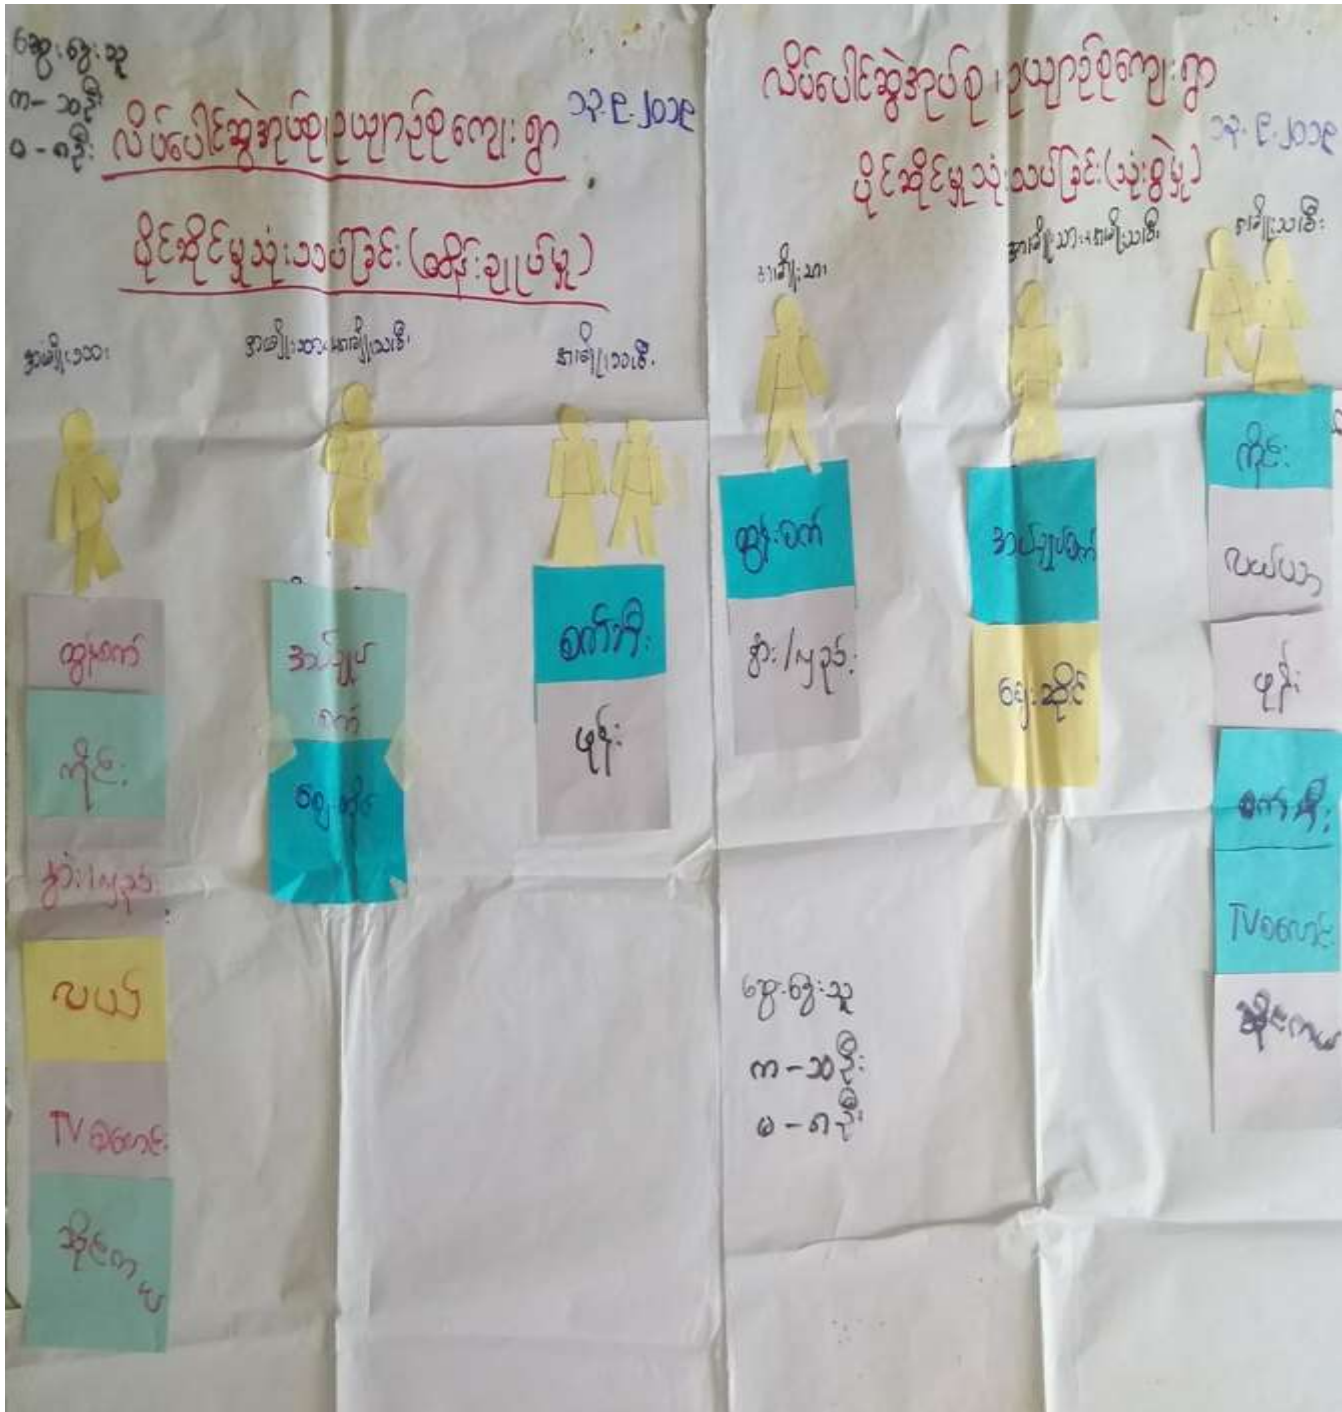 ဆွေးနွေးသူ
က - ၁၀ ဦး
မ - ၈ ဦး
လိပ်ပေါင်ဆွဲအုပ်စု၊ ဥယျာဉ်စုကျေးရွာ
၁၃.၉.၂၀၁၉
ပိုင်ဆိုင်မှုသုံးသပ်ခြင်း (ထိန်းချုပ်မှု)
အမျိုးသား
အမျိုးသား၊အမျိုးသမီး
အမျိုးသမီး
ထွန်စက်
ကိုင်း
နွား/လှည်း
လယ်
TV စလောင်း
ဆိုင်ကယ်
အပ်ချုပ်
စက်
ဈေးဆိုင်
စက်ဘီး
ဖုန်း
လိပ်ပေါင်ဆွဲအုပ်စု၊ ဥယျာဉ်စုကျေးရွာ
၁၃.၉.၂၀၁၉
ပိုင်ဆိုင်မှုသုံးသပ်ခြင်း (သုံးစွဲမှု)
အမျိုးသား
အမျိုးသား၊အမျိုးသမီး
အမျိုးသမီး
ထွန်းစက်
နွား/လှည်း
အပ်ချုပ်စက်
ဈေးဆိုင်
ကိုင်း
လယ်ယာ
ဖုန်း
စက်ဘီး
TV စလောင်း
ဆိုင်ကယ်
ဆွေးနွေးသူ
က - ၁၀ ဦး
မ - ၈ ဦး